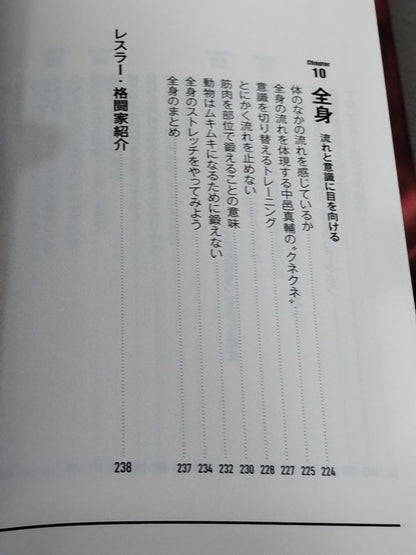 Chapter
10 全身 流れと意識に目を向ける
体のなかの流れを感じているか 224
全身の流れを体現する中邑真輔の〝クネクネ〟 225
意識を切り替えるトレーニング 227
とにかく流れを止めない 228
筋肉を部位で鍛えることの意味 230
動物はムキムキになるために鍛えない 232
全身のストレッチをやってみよう 234
全身のまとめ 237
レスラー・格闘家紹介 238